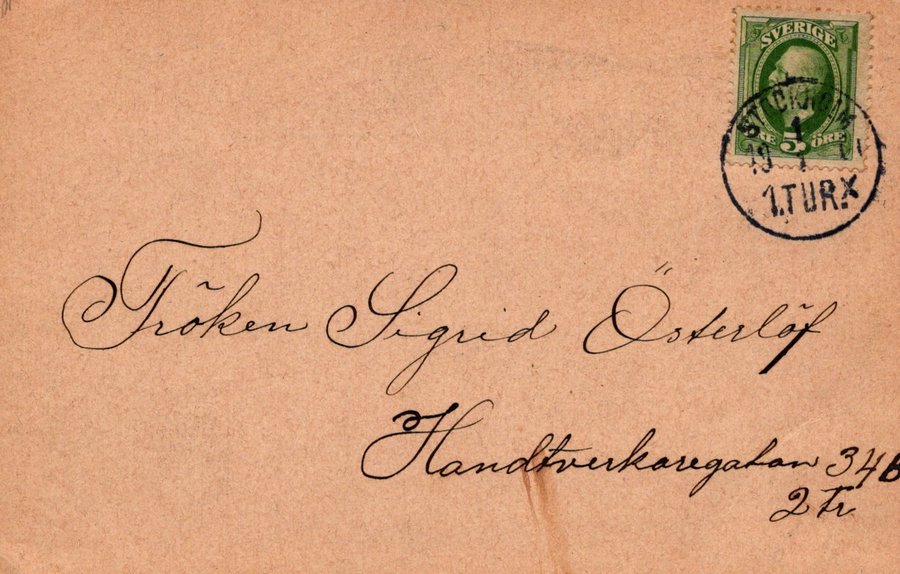 SVERIGE
5 ÖRE
STOCKHOLM
1
19 1 01
1.TUR.X
Fröken Sigrid Österlöf
Handtverkaregatan 34B
2 Tr